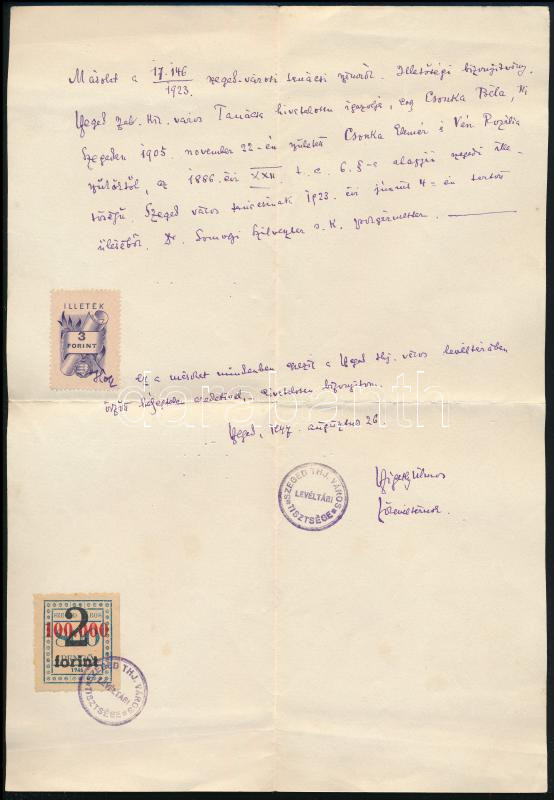 Másolat a 17.146/1923. szeged-városi tanácsi számról. Illetőségi bizonyítvány.
Szeged szab. kir. város Tanácsa hivatalosan igazolja, hogy Csonka Béla, ki
Szegeden 1905. november 22-én született Csonka Elemér és Vén Rozália
szülőktől, az 1886. évi XXII. t.c. 6. §-a alapján szegedi ille-
tőségű. Szeged város tanácsának 1923. évi június 4-én tartott
üléséből. Dr. Somogyi Szilveszter s.k. polgármester.
ILLETÉK
3
FORINT
Hogy ez a másolat mindenben egyezik a Szeged thj. város levéltárában
őrzött eredetivel, hivatalosan bizonyítom.
Szeged, 1947. augusztus 26.
darabanth
SZEGED THJ. VÁROS
LEVÉLTÁRI
TISZTSÉGE
főlevéltárnok
2
100.000
forint
1945
SZEGED THJ. VÁROS
LEVÉLTÁRI
TISZTSÉGE